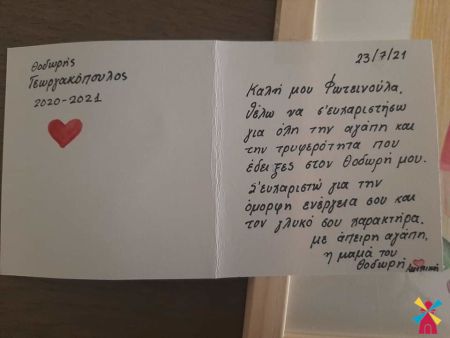 Θοδωρής
Γεωργακόπουλος
2020-2021
23/7/21
Καλή μου Φωτεινούλα,
θέλω να σ'ευχαριστήσω
για όλη την αγάπη και
την τρυφερότητα που
έδειξες στον Θοδωρή μου.
Σ'ευχαριστώ για την
όμορφη ενέργεια σου και
τον γλυκό σου χαρακτήρα.
με άπειρη αγάπη,
η μαμά του
Θοδωρή